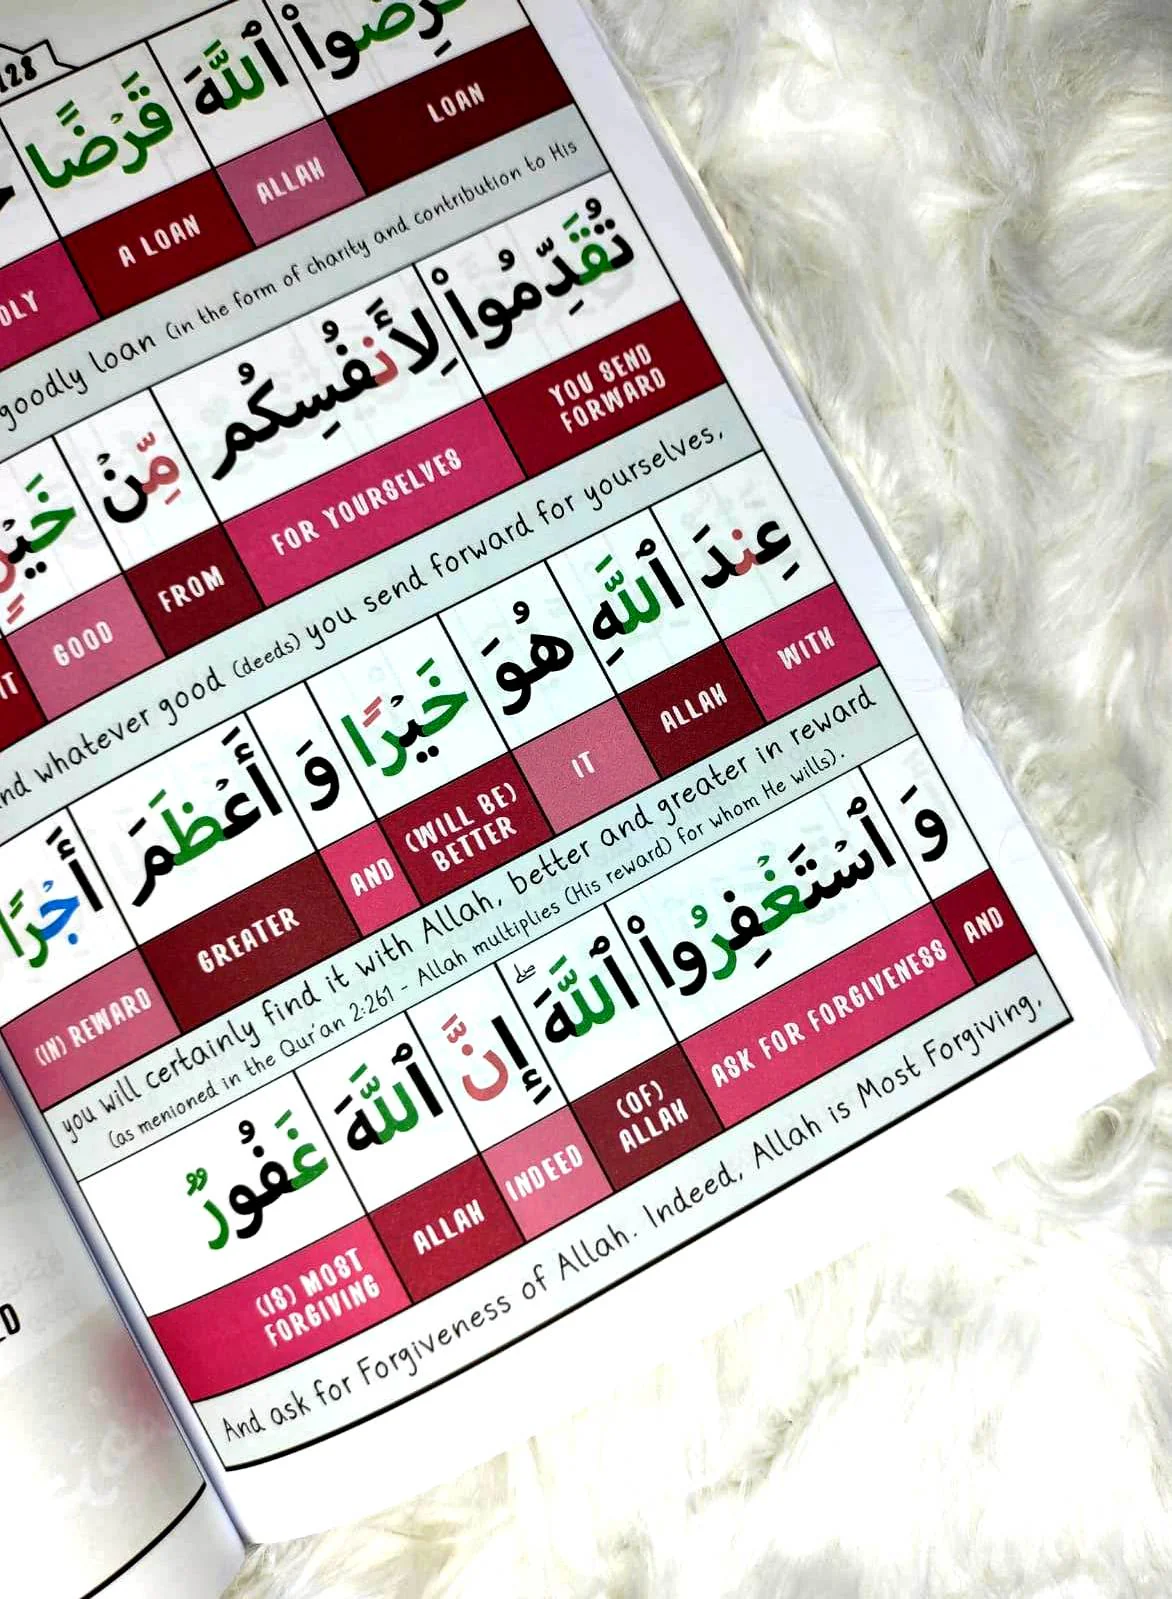 128
ٱللَّهَ قَرْضًا
LOAN ALLAH A LOAN
goodly loan (in the form of charity and contribution to His
تُقَدِّمُوا۟ لِأَنفُسِكُم مِّنْ
YOU SEND FORWARD FOR YOURSELVES FROM GOOD
whatever good (deeds) you send forward for yourselves,
عِندَ ٱللَّهِ هُوَ خَيْرًا وَ أَعْظَمَ أَجْرًا
WITH ALLAH IT (WILL BE) BETTER AND GREATER (IN) REWARD
you will certainly find it with Allah, better and greater in reward
(as menioned in the Qur'an 2:261 - Allah multiplies (His reward) for whom He wills).
وَ ٱسْتَغْفِرُوا۟ ٱللَّهَ ۖ إِنَّ ٱللَّهَ غَفُورٌ
AND ASK FOR FORGIVENESS (OF) ALLAH INDEED ALLAH (IS) MOST FORGIVING
And ask for Forgiveness of Allah. Indeed, Allah is Most Forgiving,